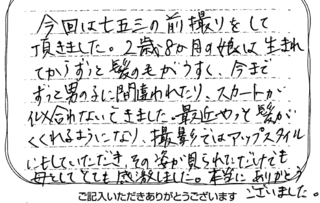 今回は七五三の前撮りをして
頂きました。2歳8か月の娘は生まれ
てからずっと髪の毛がうすく、今まで
ずっと男の子に間違われたり、スカートが
似合わないできました。最近やっと髪が
くくれるようになり、撮影ではアップスタイル
にもしていただき、その姿が見られただけでも
母としてとても感激しました。本当にありがとう
ございました。
ご記入いただきありがとうございます